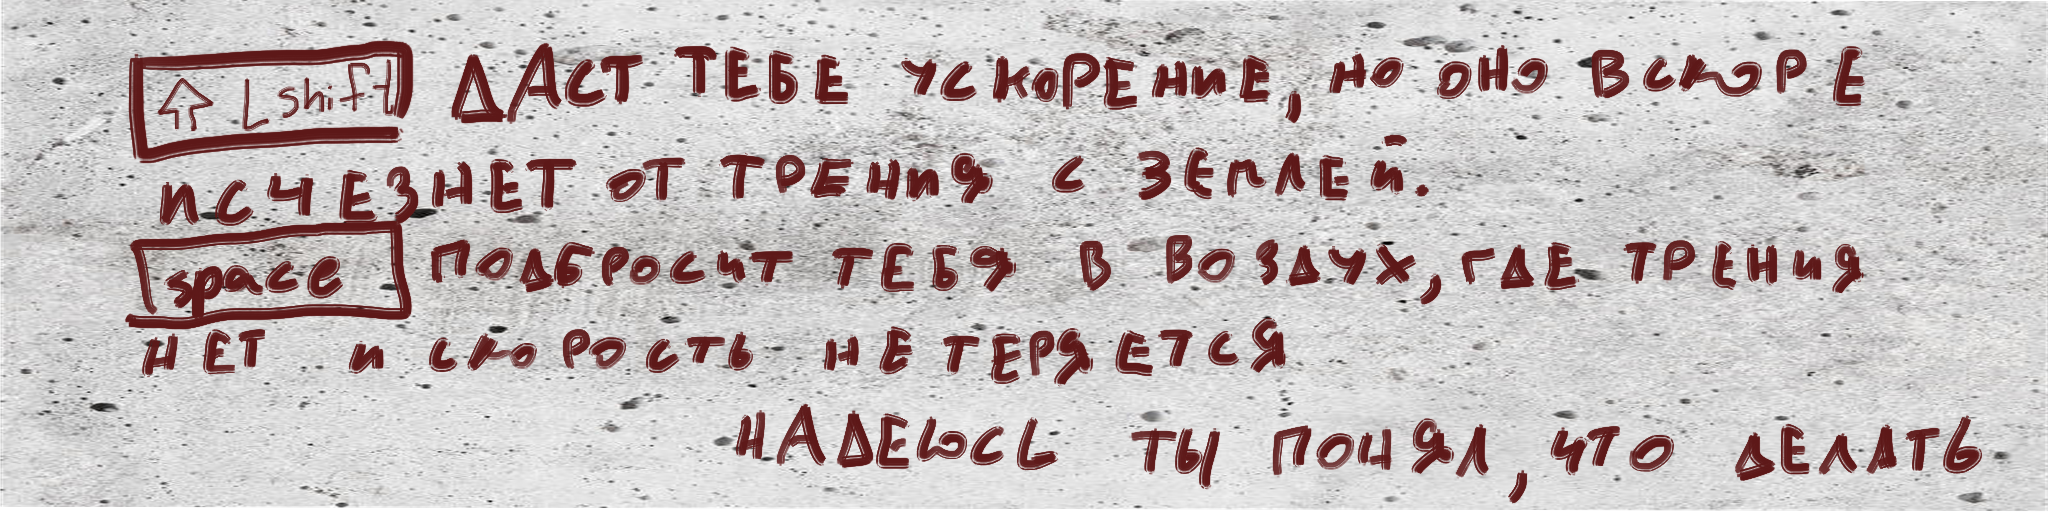 ⇧ Lshift ДАСТ ТЕБЕ УСКОРЕНИЕ, НО ОНО ВСКОРЕ
ИСЧЕЗНЕТ ОТ ТРЕНИЯ С ЗЕМЛЕЙ.
space ПОДБРОСИТ ТЕБЯ В ВОЗДУХ, ГДЕ ТРЕНИЯ
НЕТ И СКОРОСТЬ НЕ ТЕРЯЕТСЯ
НАДЕЮСЬ ТЫ ПОНЯЛ, ЧТО ДЕЛАТЬ